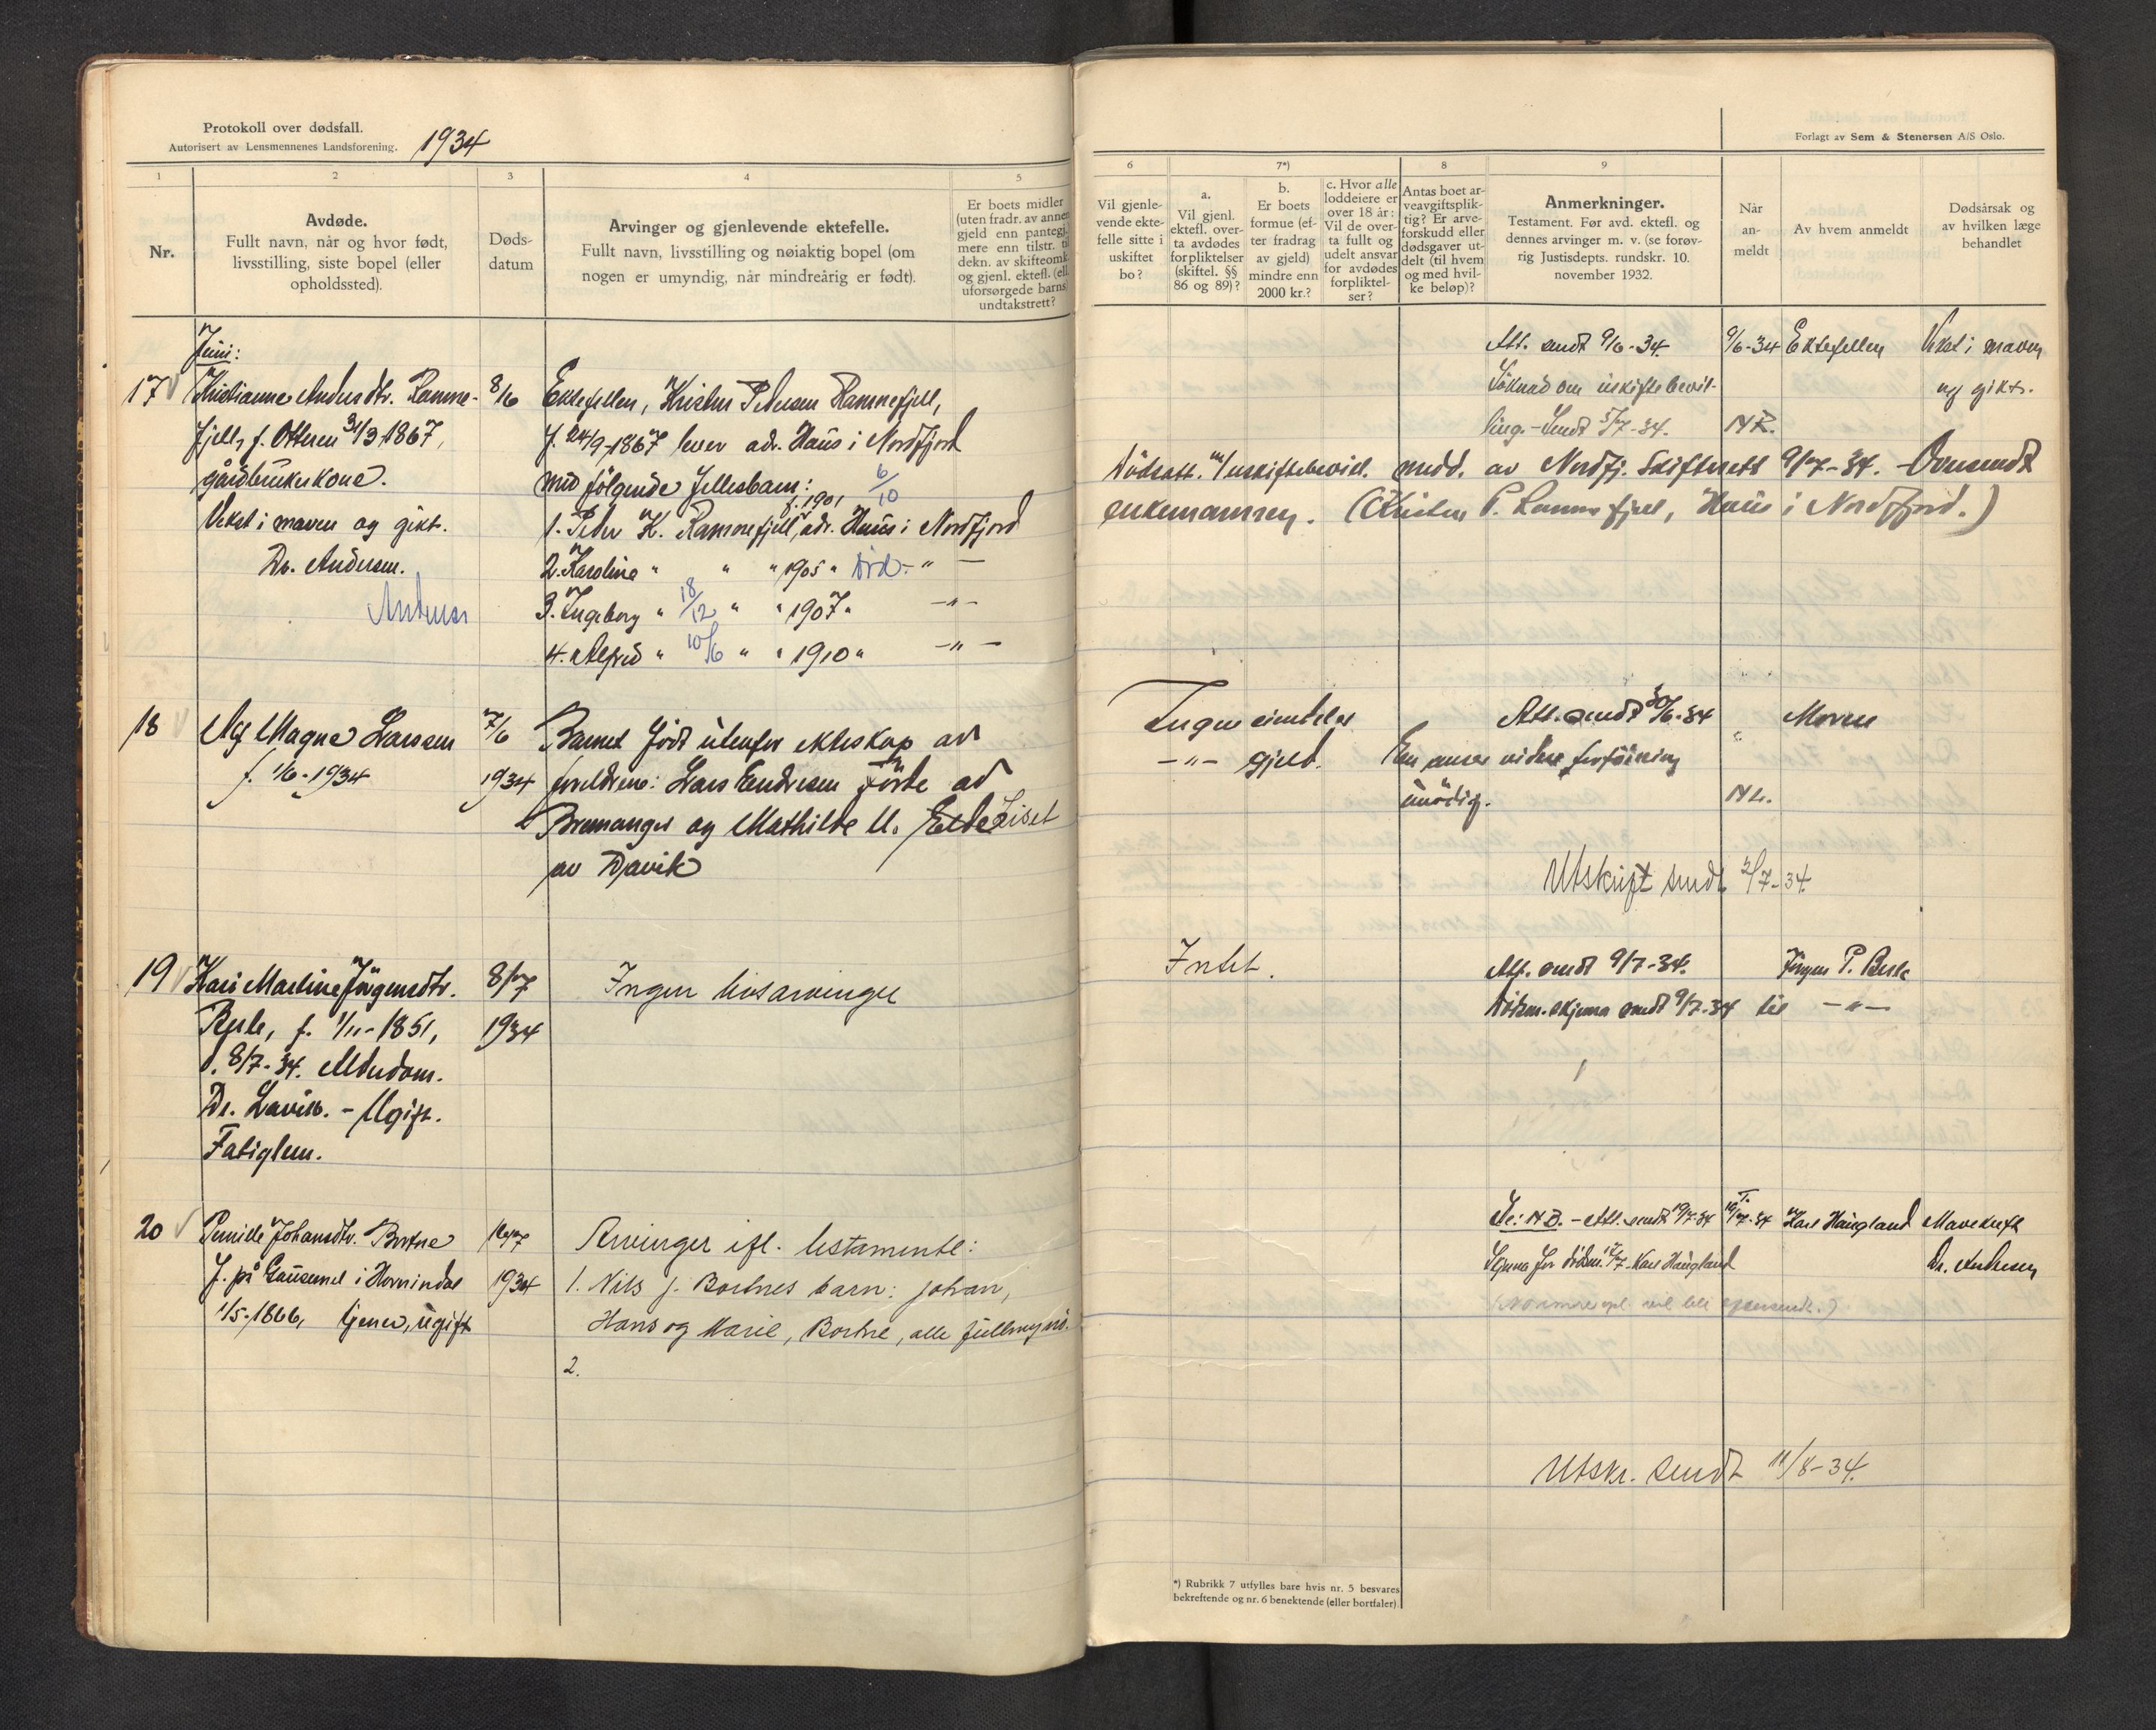 Protokoll over dødsfall.
Autorisert av Lensmennenes Landsforening.
1934
1
2
3
4
5
Nr.
Avdøde.
Fullt navn, når og hvor født,
livsstilling, siste bopel (eller
opholdssted).
Døds-
datum
Arvinger og gjenlevende ektefelle.
Fullt navn, livsstilling og nøiaktig bopel (om
nogen er umyndig, når mindreårig er født).
Er boets midler
(uten fradr. av annen
gjeld enn pantegj-
mere enn tilstr. til
dekn. av skifteomk.
og gjenl. ektefl. (ell.
uforsørgede barns)
undtakstrett?
Juni:
17
Kristianne Andersdtr. Ramme-
fjell, f. Otteren 31/3 1867,
gårdbrukerkone.
Vekst i maven og gikt.
Dr. Andersen.
8/6
Ektefellen, Kristen Pedersen Rammefjell,
f. 24/9-1867 lever adr. Haus i Nordfjord
med følgende fellesbarn: 6/10
f. 1901
1. Peder K. Rammefjell, adr. Haus i Nordfjord
2. Karoline " " " 1905 " " —
3. Ingeborg " 18/12 " " 1907 " —"—
4. Alfred " 10/6 " " 1910 " —"—
18
Alf Magne Larsen
f. 1/6-1934
7/6
1934
Barnet født utenfor ekteskap av
foreldrene: Lars Endresen Førde av
Bremanger og Mathilde M. Endre Liset
av Davik
19
Kari Martine Jørgensdtr.
Rysle, f. 1/11-1851,
d. 8/7-34. Alderdom.
Dr. Lavik. - Ugift.
Fatiglem.
8/7
1934
Ingen livsarvinger
20
Pernille Johansdtr. Bortne
f. på Gausemel i Hornindal
1/5-1866, tjener, ugift
1934
Arvinger ifl. testamente:
1. Nils J. Bortnes barn: Johan,
Hans og Marie, Bortne, alle fullmynd.
2.
Forlagt av Sem & Stenersen A/S Oslo.
6
7*)
8
9
Vil gjenle-
vende ekte-
felle sitte i
uskiftet
bo?
a.
Vil gjenl.
ektefl. over-
ta avdødes
forpliktelser
(skiftel. §§
86 og 89)?
b.
Er boets
formue (ef-
ter fradrag
av gjeld)
mindre enn
2000 kr.?
c. Hvor alle
loddeiere er
over 18 år:
Vil de over-
ta fullt og
udelt ansvar
for avdødes
forpliktel-
ser?
Antas boet ar-
veavgiftsplik-
tig? Er arve-
forskudd eller
dødsgaver ut-
delt (til hvem
og med hvil-
ke beløp)?
Anmerkninger.
Testament. Før avd. ektefl. og
dennes arvinger m. v. (se forøv-
rig Justisdepts. rundskr. 10.
november 1932.
Når
an-
meldt
Av hvem anmeldt
Dødsårsak og
av hvilken læge
behandlet
Att. sendt 9/6-34.
9/6-34
Ektefellen
Vekst i maven
og gikt.
Søknad om uskiftebevil-
ling. - Sendt 5/7-34.
Dødsatt. m/ uskiftebevill. medd. av Nordfj. Skifterett 9/7-34. - Oversendt
enkemannen. (Kristen P. Rammefjell, Haus i Nordfjord.)
Ingen eiendeler
—"— gjeld.
Att. sendt 30/6-34
"
Moren
Een anser videre forføining
unødig.
Utskrift sendt 2/7-34.
Intet.
Att. sendt 9/7-34.
Jørgen P. Rysle
Dødsm.skjema sendt 9/7-34 til —"—
Se: N.B. - Att. sendt 19/7-34
Karl Haugland
Mavekreft
Skjema for dødsm. 17/7 Karl Haugland
Dr. Andersen
Utskr. sendt 11/8-34.
*) Rubrikk 7 utfylles bare hvis nr. 5 besvares
bekreftende og nr. 6 benektende (eller bortfaler).